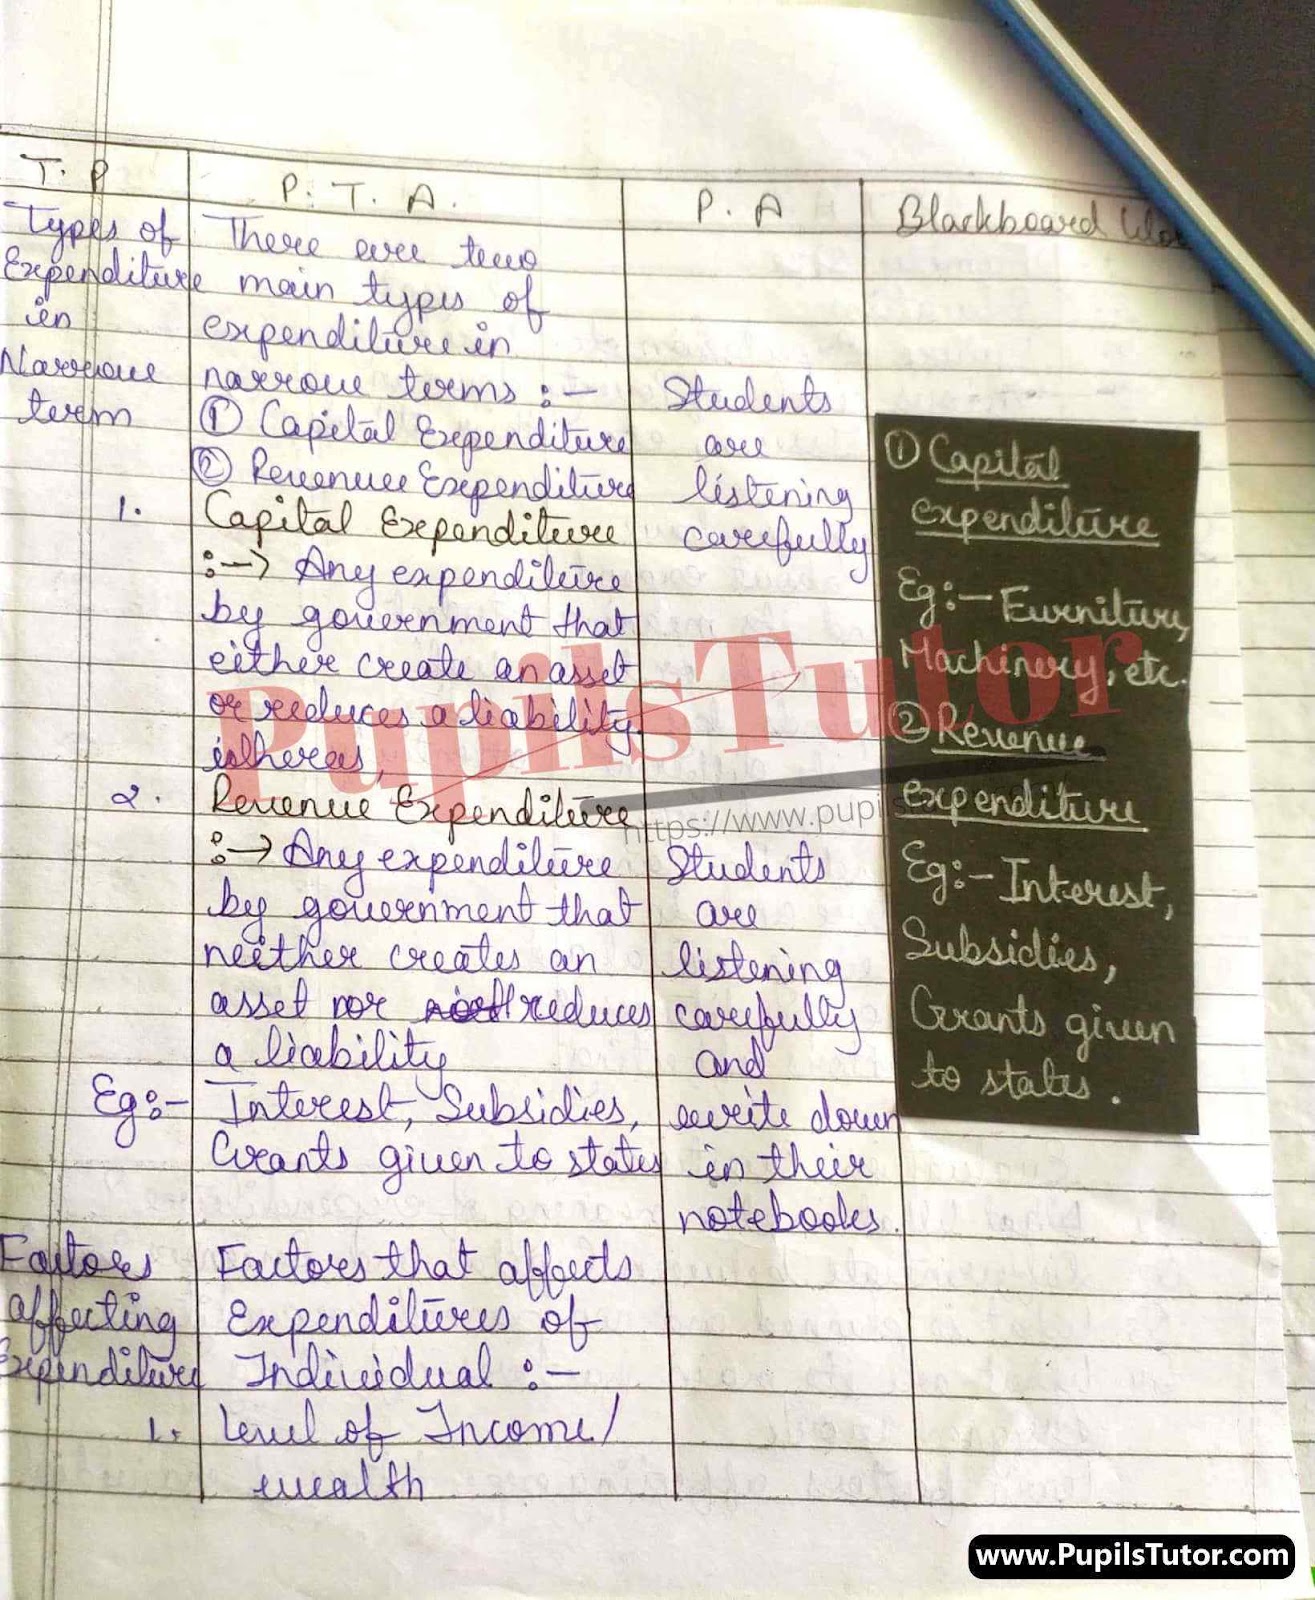 T. P
P. T. A.
P. A
Blackboard
Types of
Expenditure
in
Narrow
term
There are two
main types of
expenditure in
narrow terms :-
① Capital Expenditure
② Revenue Expenditure
1. Capital Expenditure
:-> Any expenditure
by government that
either create an asset
or reduces a liability
whereas,
2. Revenue Expenditure
:-> Any expenditure
by government that
neither creates an
asset nor reduces
a liability
Eg:- Interest, Subsidies,
Grants given to states
Students
are
listening
carefully
Students
are
listening
carefully
and
write down
in their
notebooks.
① Capital
expenditure
Eg:- Furniture,
Machinery, etc.
② Revenue
expenditure
Eg:- Interest,
Subsidies,
Grants given
to states.
Factors
affecting
Expenditure
Factors that affects
Expenditures of
Individual :-
1. Level of Income/
wealth
PupilsTutor
https://www.pupils
www.PupilsTutor.com